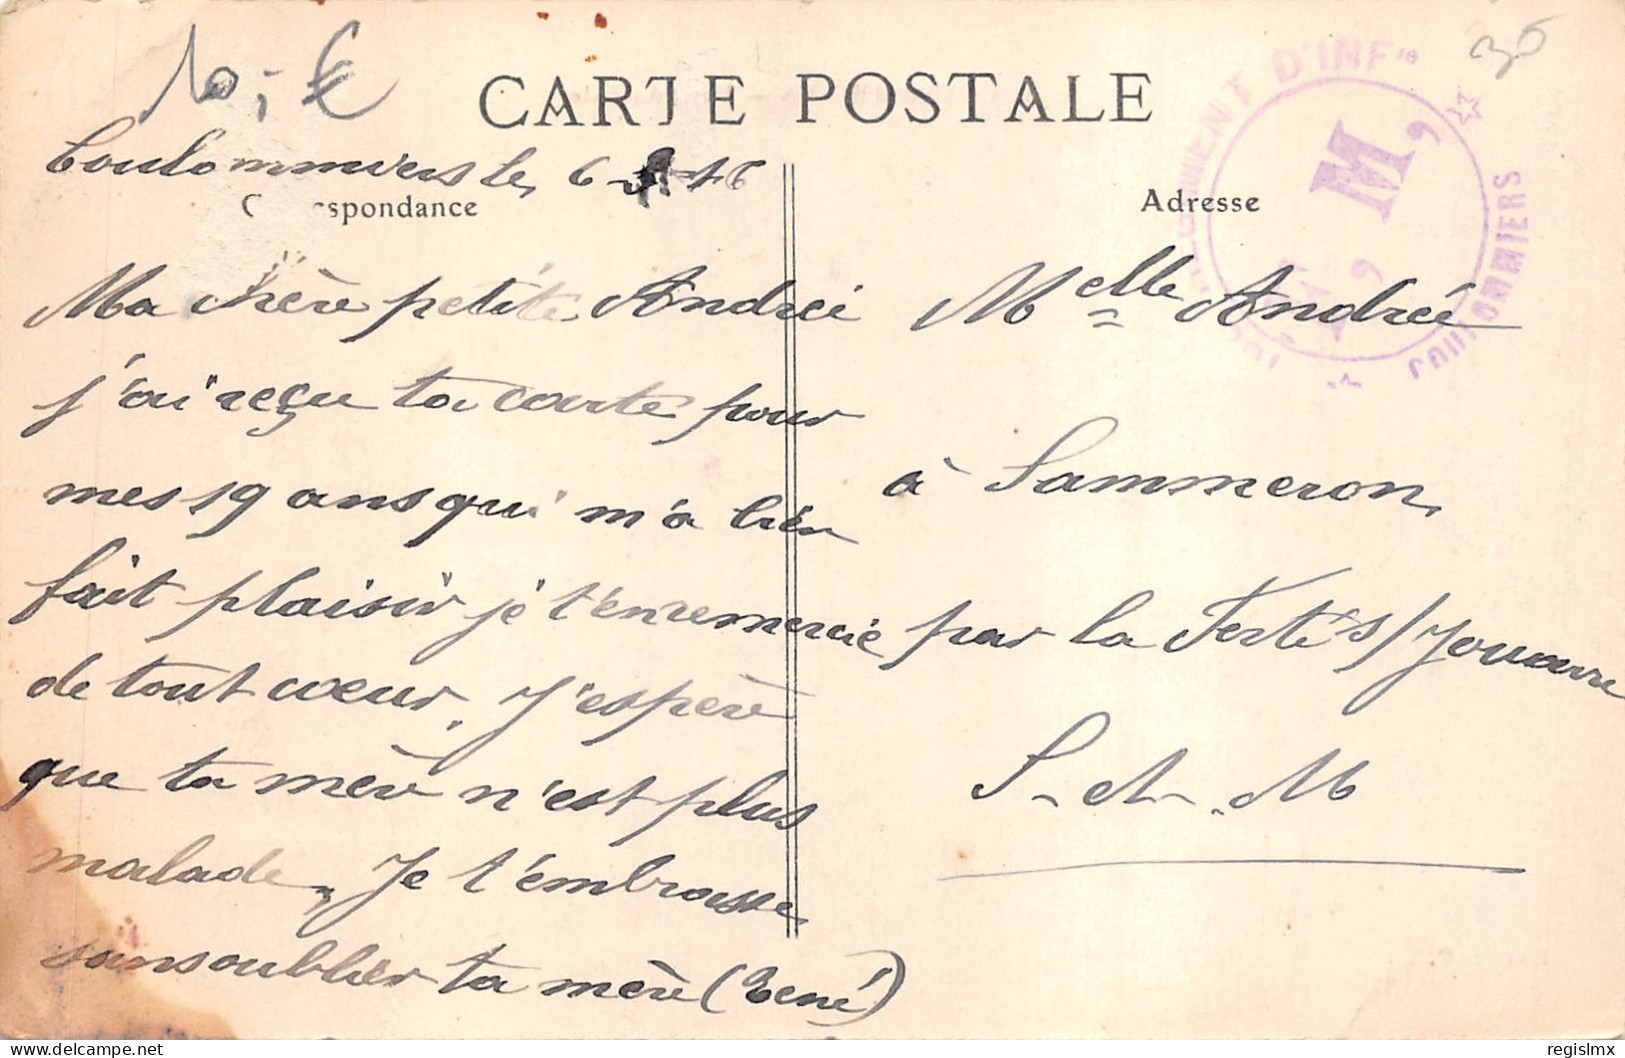 10,- €
36
CARTE POSTALE
Coulommiers le 6- -16
Correspondance
Ma chère petite Andrée
j'ai reçu ta carte pour
mes 19 ans qui m'a bien
fait plaisir je t'en remercie
de tout cœur. J'espère
que ta mère n'est plus
malade. Je t'embrasse
sans oublier ta mère (René)
Adresse
RÉGIMENT D'INFie
COULOMMIERS
Melle Andrée
à Sammeron
par la Ferté s/Jouarre
S-et-M
regislmx